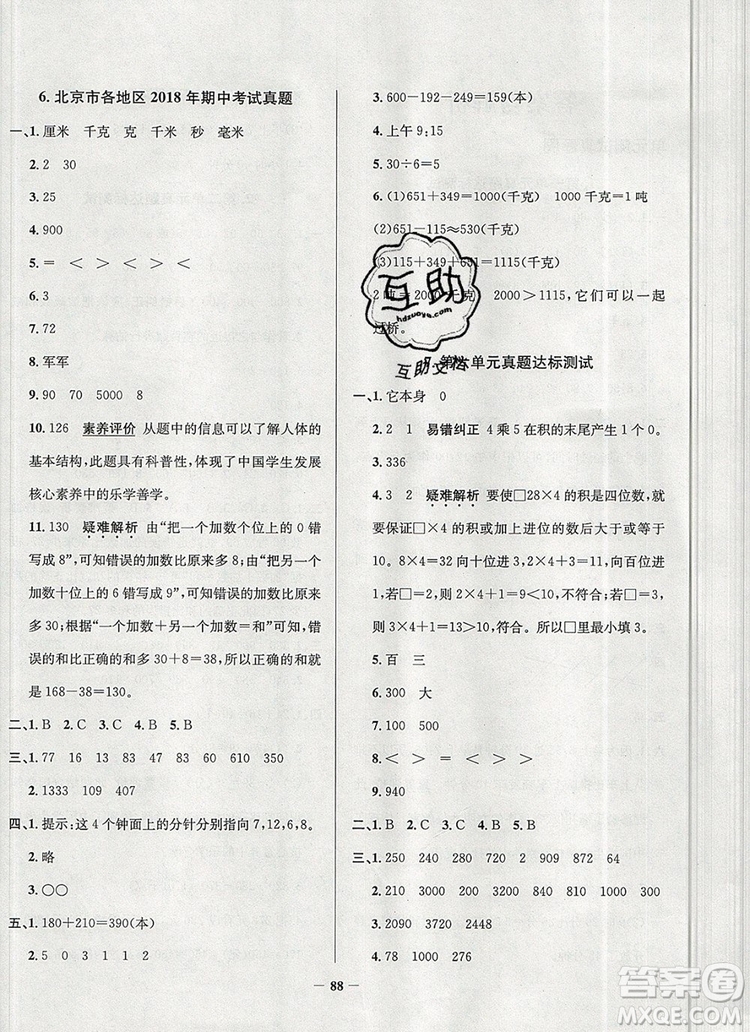 6. 北京市各地区 2018 年期中考试真题
一、1. 厘米 千克 克 千米 秒 毫米
2. 2 30
3. 25
4. 900
5. = < > < > <
6. 3
7. 72
8. 军军
9. 90 70 5000 8
10. 126 素养评价 从题中的信息可以了解人体的
基本结构，此题具有科普性，体现了中国学生发展
核心素养中的乐学善学。
11. 130 疑难解析 由“把一个加数个位上的 0 错
写成 8”，可知错误的加数比原来多 8；由“把另一个
加数十位上的 6 错写成 9”，可知错误的加数比原来多
30；根据“一个加数＋另一个加数＝和”可知，错
误的和比正确的和多 30＋8＝38，所以正确的和就
是 168－38＝130。
二、1. B 2. C 3. C 4. B 5. B
三、1. 77 16 13 83 47 92 60 610 350
2. 1333 109 407
四、1. 提示：这 4 个钟面上的分针分别指向 7，12，6，8。
2. 略
3. ○○
五、1. 180＋210＝390(本)
2. 5 0 3 1 1 2
3. 600－192－249＝159(本)
4. 上午 9:15
5. 30÷6＝5
6. (1)651＋349＝1000(千克) 1000 千克＝1 吨
(2)651－115≈530(千克)
(3)115＋349＋651＝1115(千克)
2 吨＝2000 千克 2000＞1115，它们可以一起
过桥。
第六单元真题达标测试
一、1. 它本身 0
2. 2 1 易错纠正 4 乘 5 在积的末尾产生 1 个 0。
3. 336
4. 3 2 疑难解析 要使□28×4 的积是四位数，就
要保证□×4 的积或加上进位的数后大于或等于
10。8×4＝32 向十位进 3，2×4＋3＝11 向百位进
1，若□＝2，则 2×4＋1＝9＜10，不符合；若□＝3，
则 3×4＋1＝13＞10，符合。所以□里最小填 3。
5. 百 三
6. 300 大
7. 100 500
8. < > = < = >
9. 940
二、1. B 2. C 3. C 4. B 5. C
三、1. 280 909 720 2 909 872 64
2. 4200 900 3500 720 840 1000 540
3. 2090 3720 2448
4. 78 1000 276
88
互助
hdzuoye.com
互助文档
答案圈
MXQE.COM